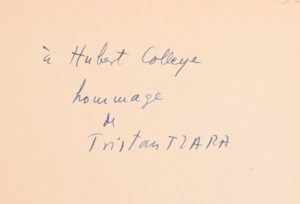 à Hubert Colleye
hommage
de
Tristan TZARA